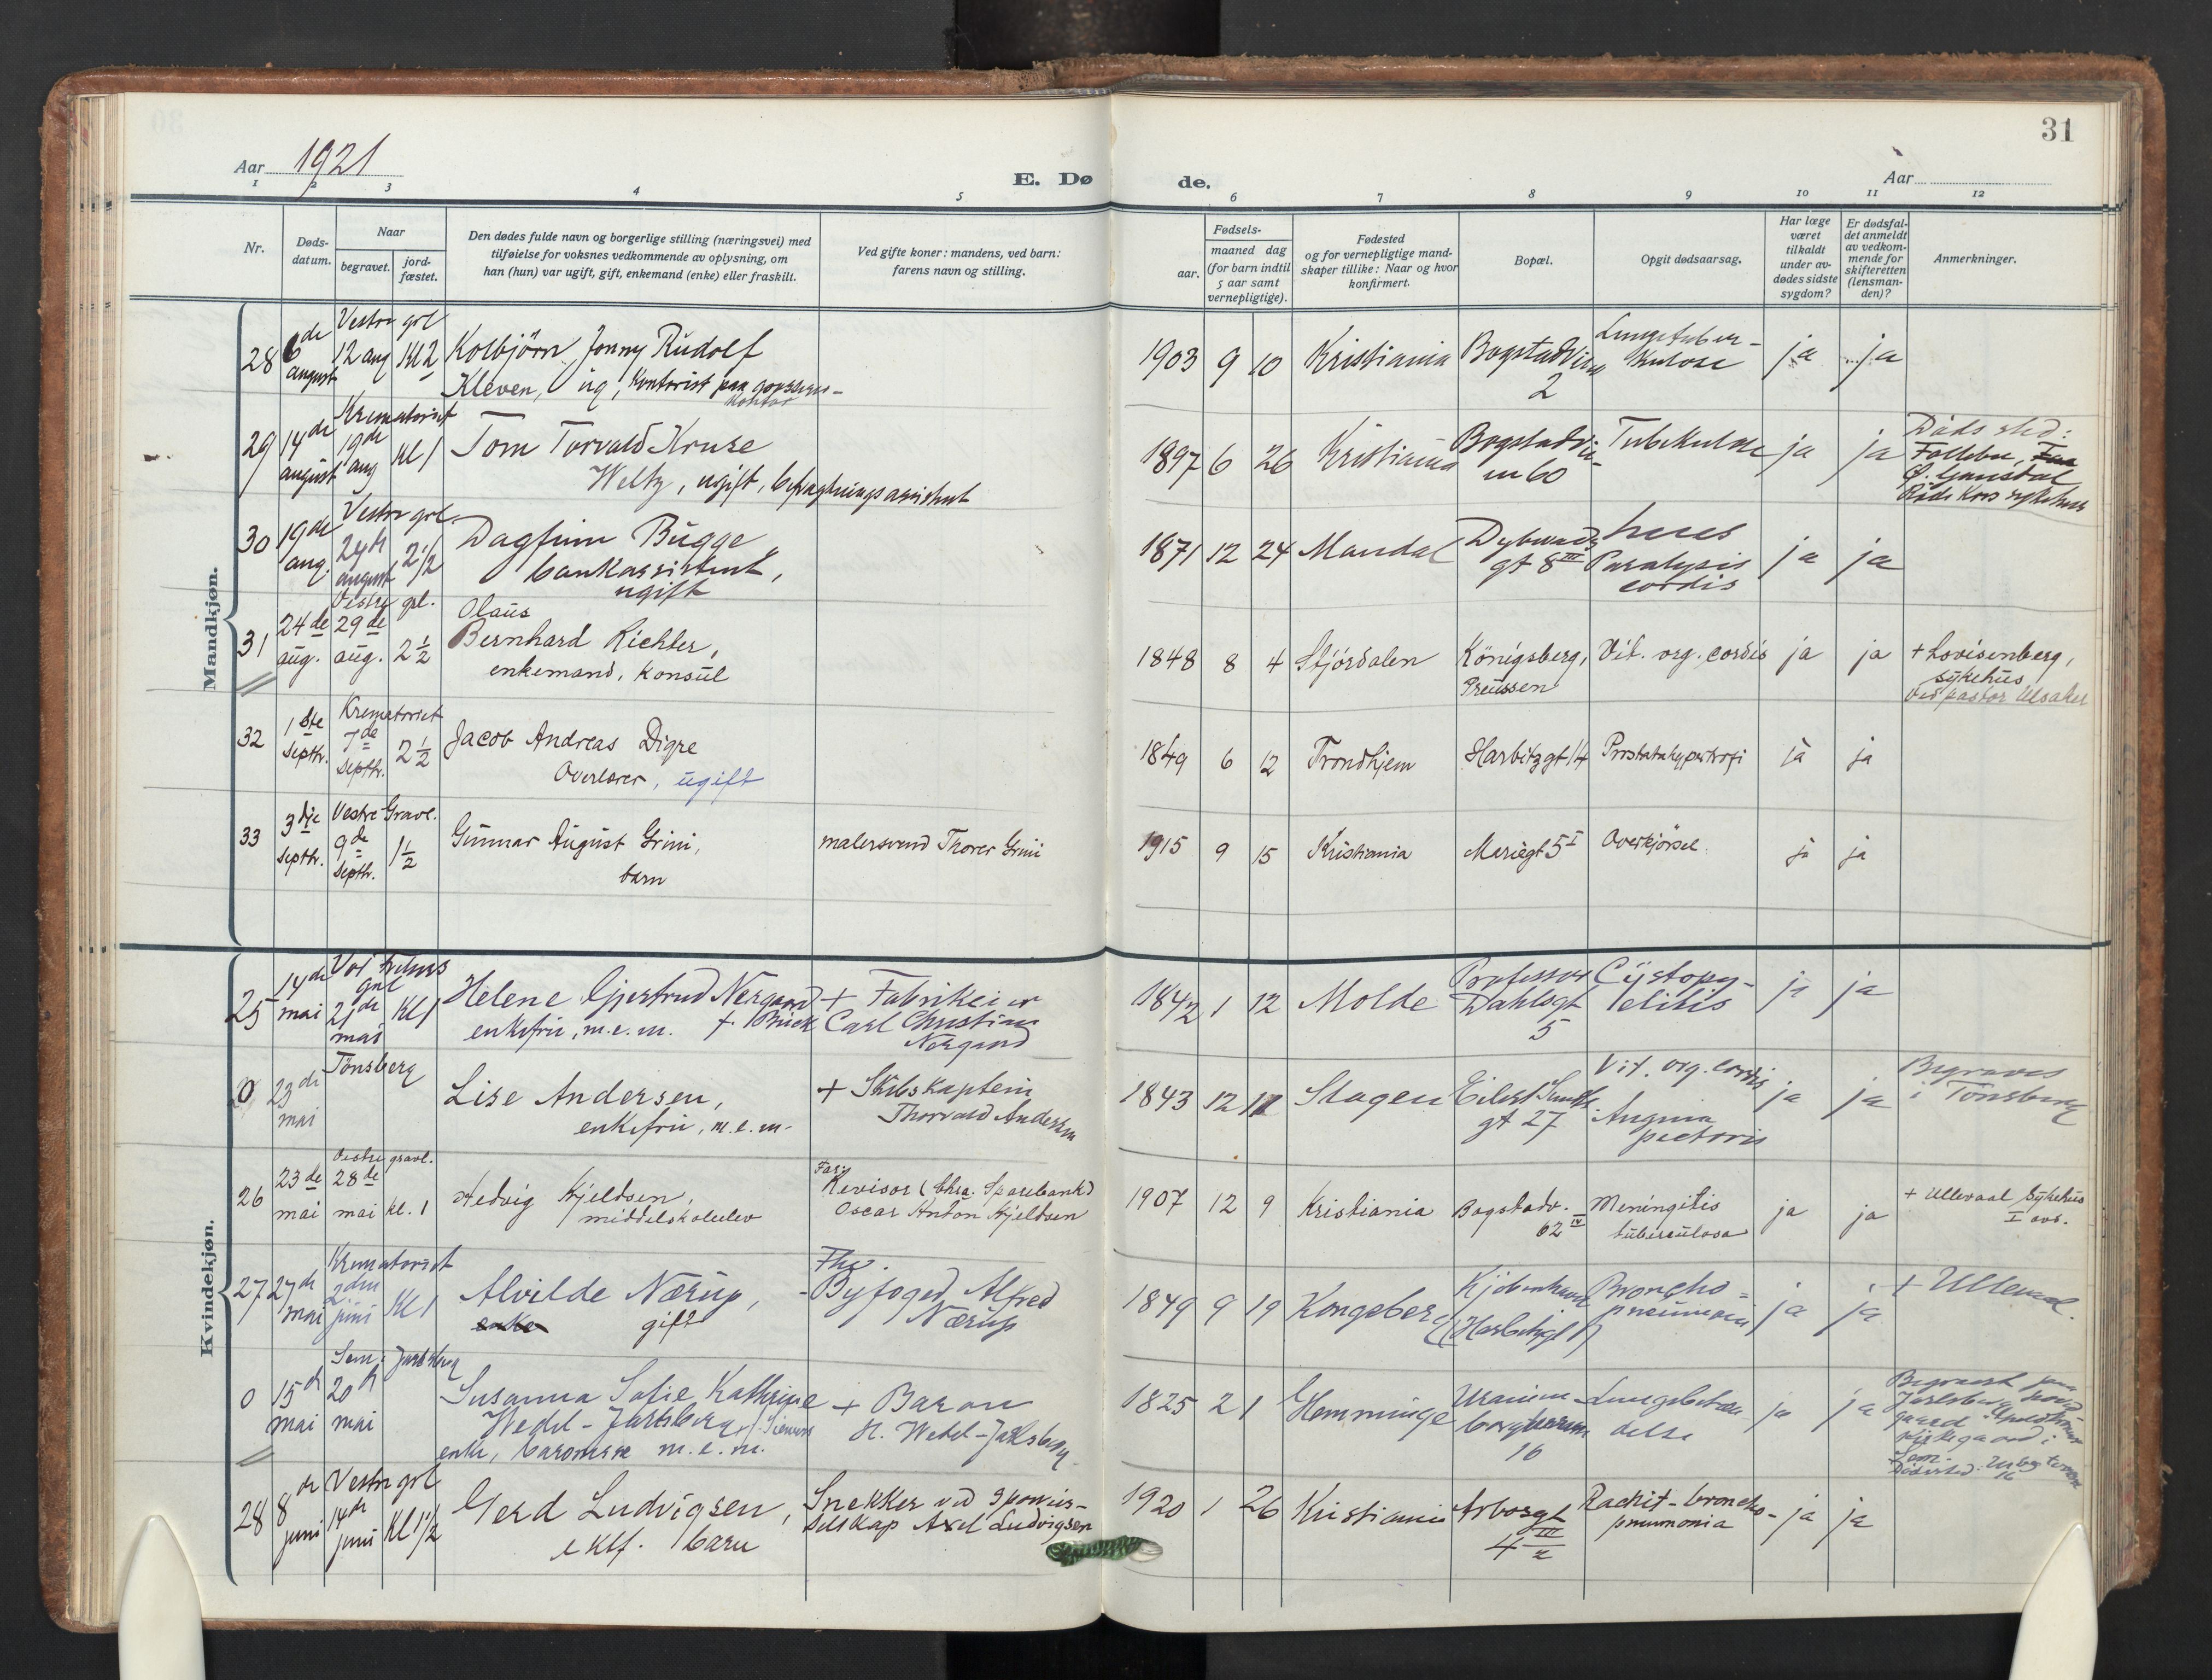 31
Aar 1921
E. Dø
de.
Aar
1 2 3 4 5 6 7 8 9 10 11 12
Nr.
Døds-
datum.
Naar
begravet.
jord-
fæstet.
Den dødes fulde navn og borgerlige stilling (næringsvei) med
tilføielse for voksnes vedkommende av oplysning, om
han (hun) var ugift, gift, enkemand (enke) eller fraskilt.
Ved gifte koner: mandens, ved barn:
farens navn og stilling.
Fødsels-
aar.
maaned dag
(for barn indtil
5 aar samt
vernepligtige).
Fødested
og for vernepligtige mand-
skaper tillike: Naar og hvor
konfirmert.
Bopæl.
Opgit dødsaarsag.
Har læge
været
tilkaldt
under av-
dødes sidste
sygdom?
Er dødsfal-
det anmeldt
av vedkom-
mende for
skifteretten
(lensman-
den)?
Anmerkninger.
Mandkjøn.
28
6de
august
Vestre grl
12 aug
Kl 2
Kolbjörn Jonny Rudolf
Kleven, ug, kontorist paa
kontor
1903 9 10
Kristiania
Bogstadvien
2
Lungetuber-
kulose
ja
ja
29
14de
august
Krematoriet
19de
aug
Kl 1
Tom Torvald Kruse
Weltz, ugift, befragtningsassistent
1897 6 26
Kristiania
Bogstadvei-
en 60
Tuberkulose
ja
ja
Dödssted:
Follebu,
Ø. Gausdal
Röde Kors sykehus
30
19de
aug.
Vestre grl.
24de
august
2 1/2
Dagfinn Bugge
bankassistent,
ugift
1871 12 24
Mandal
Dybwads
gt 8 III
Lues
Paralysis
cordis
ja
ja
31
24de
aug.
Vestre grl.
29de
aug.
2 1/2
Olaus
Bernhard Richter,
enkemand, konsul
1848 8 4
Stjördalen
Königsberg,
Preussen
Vit. org. cordis
ja
ja
+ Lovisenberg,
sykehus
ved pastor Ulsaker
32
1ste
septbr.
Krematoriet
7de
septbr.
2 1/2
Jacob Andreas Digre
Overlærer, ugift
1849 6 12
Trondhjem
Harbitzgt 14
Prostatahypertrofi
ja
ja
33
3dje
septbr.
Vestre Gravl.
9de
septbr.
1 1/2
Gunnar August Grini,
barn
malersvend Thorer Grini
1915 9 15
Kristiania
Mariegt 5 I
Overkjörsel
ja
ja
Kvindekjøn.
25
14de
mai
Vor Frelsers
grl
21de
mai
Kl 1
Helene Gjertrud Nergaard
enkefru, m.e.m. f. Brick
+ Fabrikeier
Carl Christian
Nergaard
1842 1 12
Molde
Professor
Dahlsgt
5
Cystopy-
elitis
ja
ja
0
23de
mai
Tönsberg
Lise Andersen,
enkefru, m.e.m.
+ Skibskaptein
Thorvald Andersen
1843 12 11
Slagen
Eilert Sundts
gt 27
Vit. org. cordis
Angina
pectoris
ja
ja
Begraves
i Tönsberg
26
23de
mai
Vestre gravl.
28de
mai
kl. 1
Hedvig Kjeldsen,
middelskoleelev
Far:
Revisor (Chra. Sparebank)
Oscar Anton Kjeldsen
1907 12 9
Kristiania
Bogstadv.
62 IV
Meningitis
tuberculosa
ja
ja
+ Ullevaal Sykehus
I avd.
27
27de
mai
Krematoriet
2den
juni
Kl 1
Alvilde Nærup,
enke gift
Fhv.
Byfoged Alfred
Nærup
1849 9 19
Kongsberg
Kjöbenhavn
(Harbitzgt 1)
Broncho=
pneumoni
ja
ja
+ Ullevaal.
0
15de
mai
Sem. Jarlsberg
20de
mai
Susanna Sofie Kathrine
Wedel-Jarlsberg f. Siemers
enke, baronesse m.e.m.
+ Baron
H. Wedel-Jarlsberg
1825 2 1
Hemminge
Uranien-
borgterrasse
16
Lungebetæn-
delse
ja
ja
Begravet paa
Jarlsberg hoved-
gaard
kirkegaard i
Sem.
Dödssted: terrasse
16
28
8de
juni
Vestre grl
14de
juni
Kl 1 1/2
Gerd Ludvigsen,
ektf. barn
Snekker ved Sporveis-
selskap Axel Ludvigsen
1920 1 26
Kristiania
Arbosgt
4 III
Rachit-broncho-
pneumonia
ja
ja